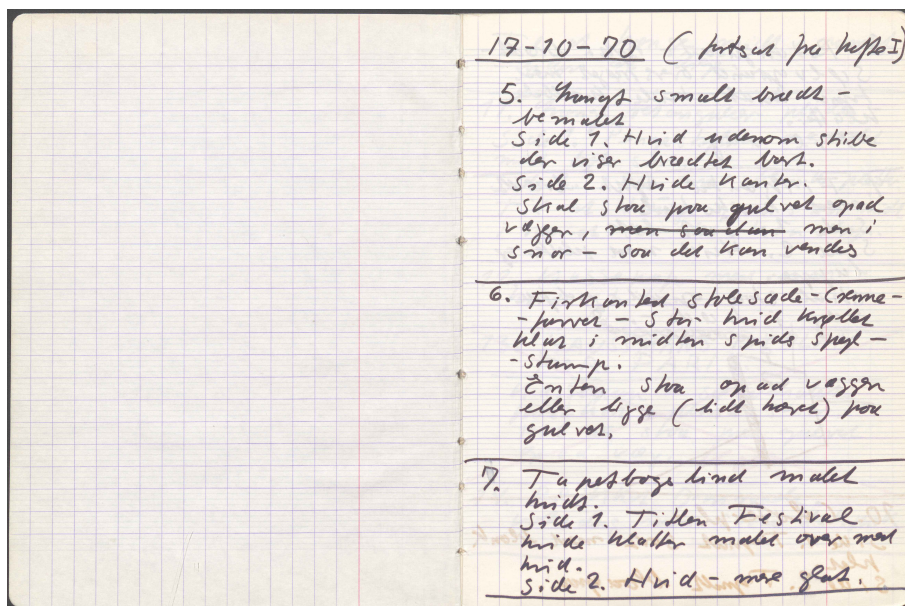 17-10-70 (fortsat fra hefte I)
5. Langt smalt brædt -
bemalet
Side 1. Hvid udenom stribe
der viser brædtet bart.
Side 2. Hvide kanter.
Skal staa paa gulvet opad
væggen, men saadan men i
snor - saa det kan vendes
6. Firkantet stolesæde - Creme-
-farvet - Stor hvid krøllet
klat i midten spids spejl-
-stump.
Enten staa opad væggen
eller ligge (lidt hævet) paa
gulvet.
7. Tapetbogs bind malet
hvidt.
Side 1. Titlen Festival
hvide klatter malet over med
hvid.
Side 2. Hvid - mere glat.